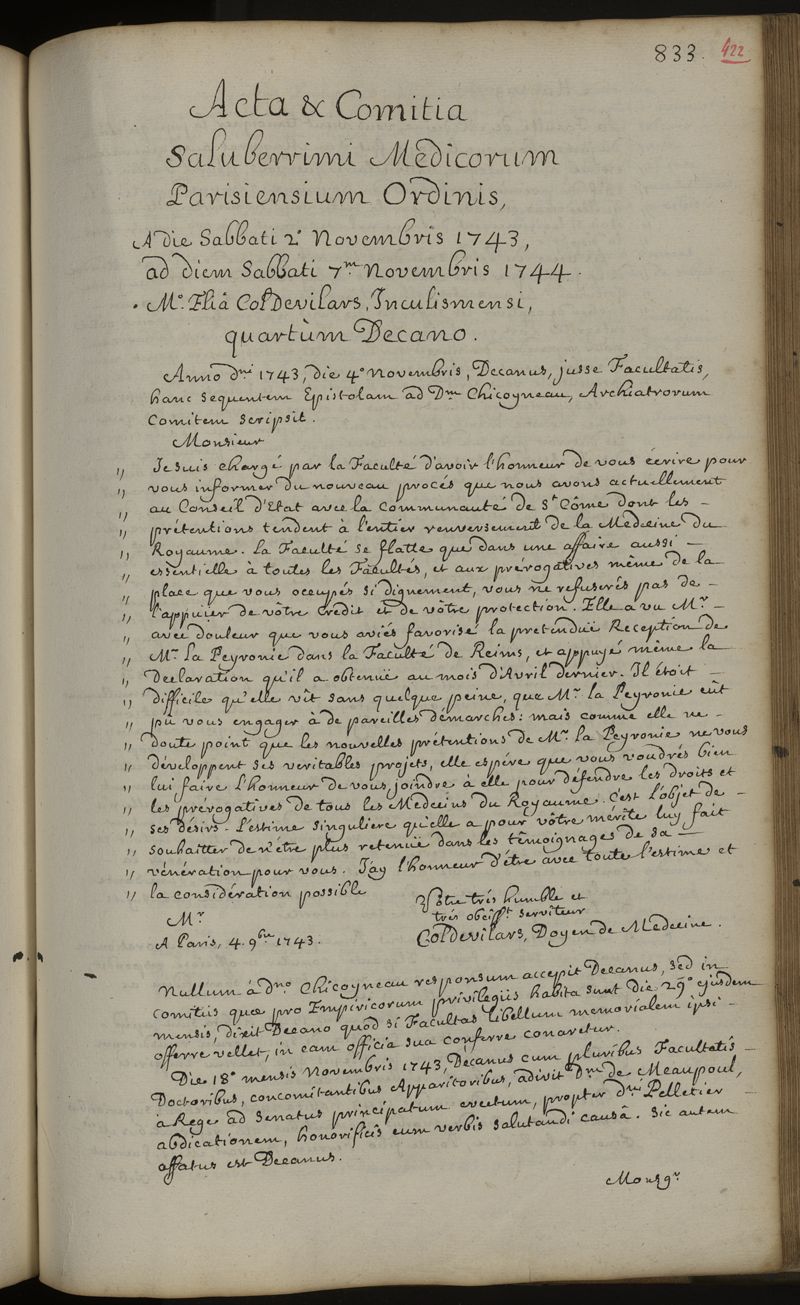 833. 422
Acta & Comitia
Saluberrimi Medicorum
Parisiensium Ordinis,
A die Sabbati 2ª Novembris 1743,
ad diem Sabbati 7m Novembris 1744.
Mº. Eliâ Coldevilars, Inculismensi,
quartùm Decano.
Anno dni 1743, die 4ª novembris, Decanus, jusse Facultatis,
hanc sequentem Epistolam ad Dnm Chicoyneau, Archiatrorum
Comitem scripsit.
Monsieur
,, Je suis chargé par la Faculté d'avoir l'honneur de vous écrire pour
,, vous informer du nouveau procés que nous avons actuellement
,, au Conseil d'Etat avec la Communauté de St Côme dont les –
,, prétentions tendent à l'entier renversement de la Medecine du
,, Royaume. La Faculté se flatte que dans une affaire aussi –
,, essentielle à toutes les Facultés, et aux prérogatives même de la
,, place que vous occupés si dignement, vous ne refuserés pas de –
,, l'appuier de vôtre crédit et de vôtre protection. Elle a vu Mr –
,, avec douleur que vous aviés favorisé la pretenduë Reception de
,, Mr La Peyronie dans la Faculté de Reims, et appuyé même la
,, Declaration qu'il a obtenuë au mois d'Avril dernier. Il étoit –
,, difficile qu'elle vît sans quelque peine, que Mr. la Peyronie eût
,, pû vous engager à de pareilles démarches: mais comme elle ne –
,, doute point que les nouvelles prétentions de Mr. la Peyronie ne vous
,, développent ses veritables projets, elle espére que vous voudrés bien
,, lui faire l'honneur de vous joindre à elle pour défendre les droits et
,, les prérogatives de tous les Medecins du Royaume. C'est l'objet de –
,, ses désirs. L'estime singuliere qu'elle a pour vôtre mérite luy fait
,, souhaitter de n'être plus retenuë dans les témoignages de sa –
,, vénération pour vous. J'ay l'honneur d'être avec toute l'estime et
,, la considération possible
Vôtre trés humble et
Mr trés obéisst serviteur
A Paris, 4. 9bre 1743. Coldevilars, Doyen de Medecine.
Nullum à dno Chicoyneau responsum accepit Decanus, sed in
comitiis quæ pro Empiricorum privilegiis habita sunt die 29ª ejusdem
mensis, dixit Decano quod si Facultas libellum memorialem ipsi –
offerre vellet, in eam officia sua conferre conaretur.
Die 18ª mensis Novembris 1743, Decanus cum pluribus Facultatis –
Doctoribus, concomitantibus Apparitoribus, adivit Dnm de Meaupoul,
à Rege ad Senatus principatum evectum, propter dni Pelletier –
abdicationem, honorificis eum verbis salutandi causâ. Sic autem
affatus est Decanus.
Monsgr